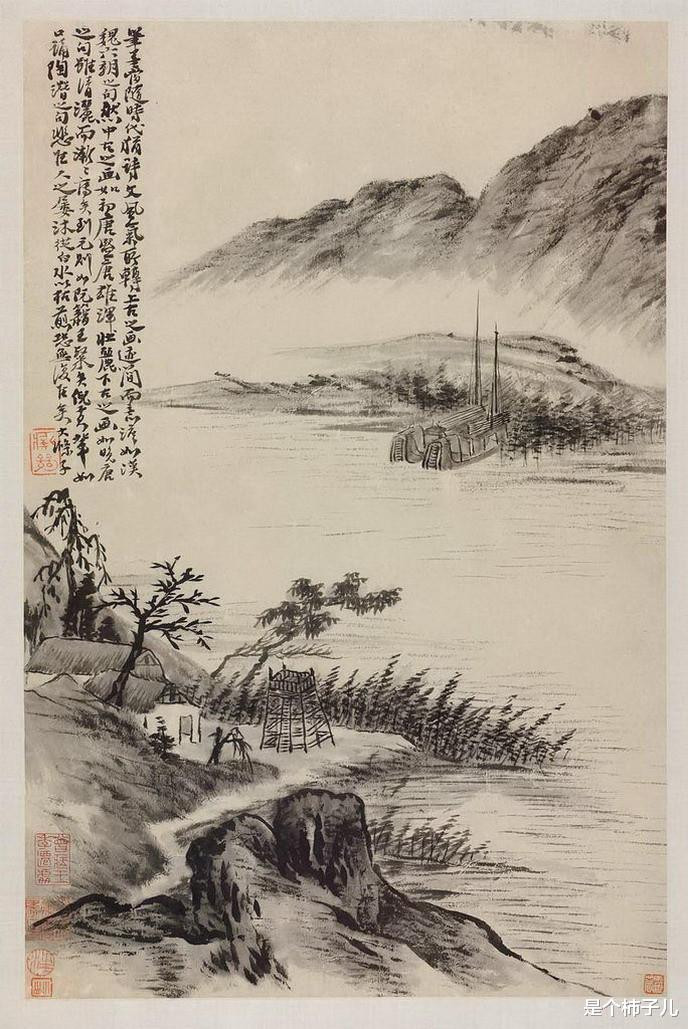 筆墨當隨時代猶詩文風氣所轉上古之畫迹簡而意澹如漢
魏六朝之句然中古之畫如初唐盛唐雄渾壯麗下古之畫如晚唐
之句雖清灑而漸〻薄矣到元則如阮籍王粲矣倪黃輩如
口誦陶潛之句悲佳人之屢沐從白水以枯煎恐無復佳矣 大滌子
是个柿子儿